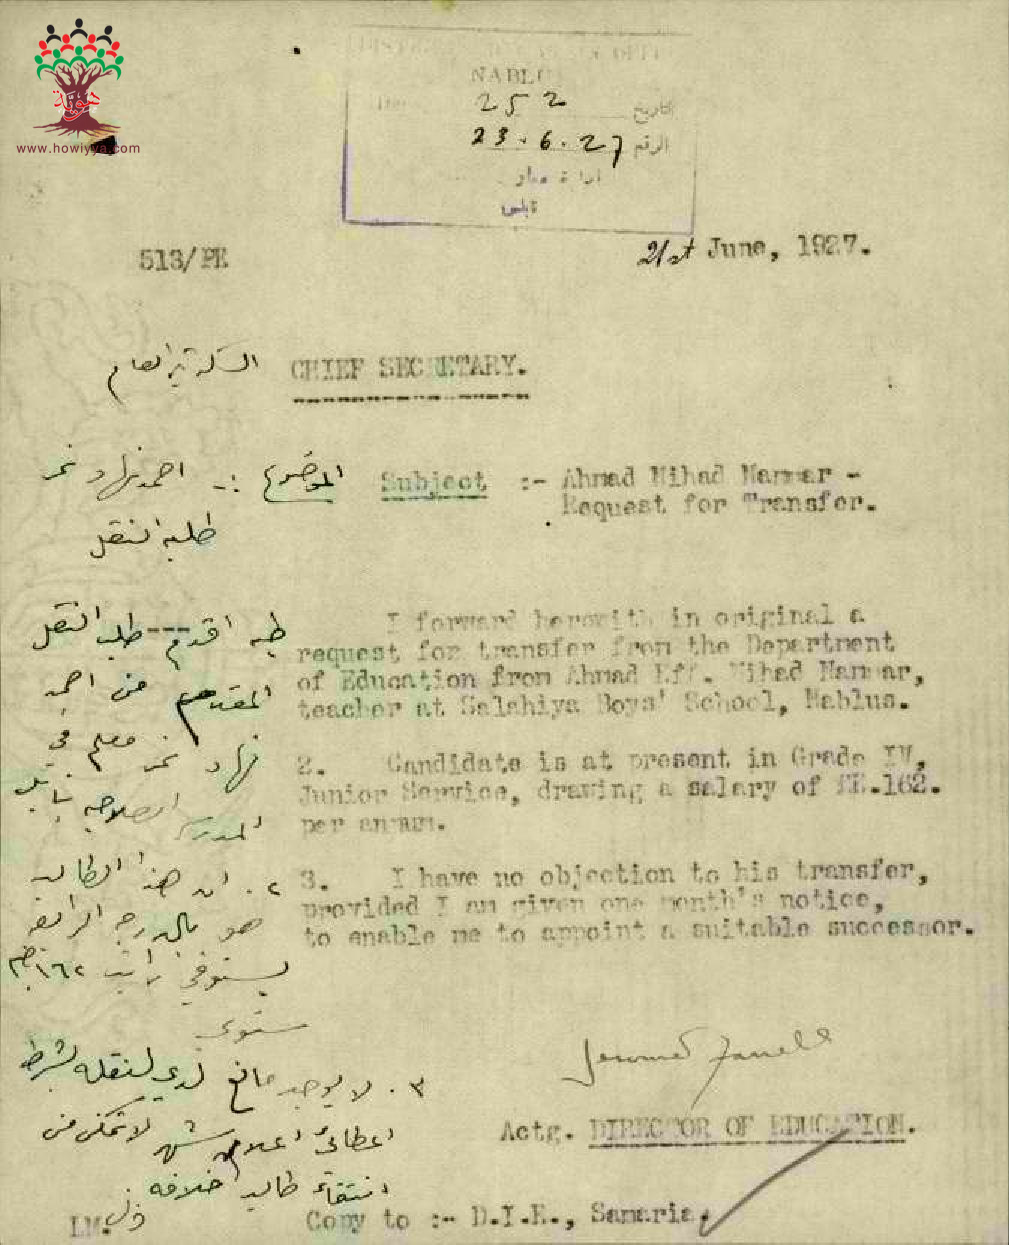 هوية
www.howiyya.com
NABLUS
252
التاريخ
23.6.27
الرقم
نابلس
513/PE
21st June, 1927.
السكرتير العام
CHIEF SECRETARY.
الموضوع :- احمد نهاد نمر
Subject :- Ahmad Nihad Nammar -
Request for Transfer.
طلبه النقل
I forward herewith in original a
request for transfer from the Department
of Education from Ahmad Eff. Nihad Nammar,
teacher at Salahiya Boys' School, Nablus.
2. Candidate is at present in Grade IV,
Junior Service, drawing a salary of £E.162.
per annum.
3. I have no objection to his transfer,
provided I am given one month's notice,
to enable me to appoint a suitable successor.
طيه اقدم --- طلب النقل
المقدم من احمد
نهاد نمر معلم في
المدرسة الصلاحيه بنابلس
٢. ان هذا الطالب
هو بالدرجه الرابعه
يستوفي راتب ١٦٢ جم
سنوي
٣. لا يوجد مانع لدي لنقله بشرط
اعطائي اعلان شهر لاتمكن من
انتقاء طالب خلافه
Jerome Farrell
Actg. DIRECTOR OF EDUCATION.
LM.
Copy to :- D.I.E., Samaria.